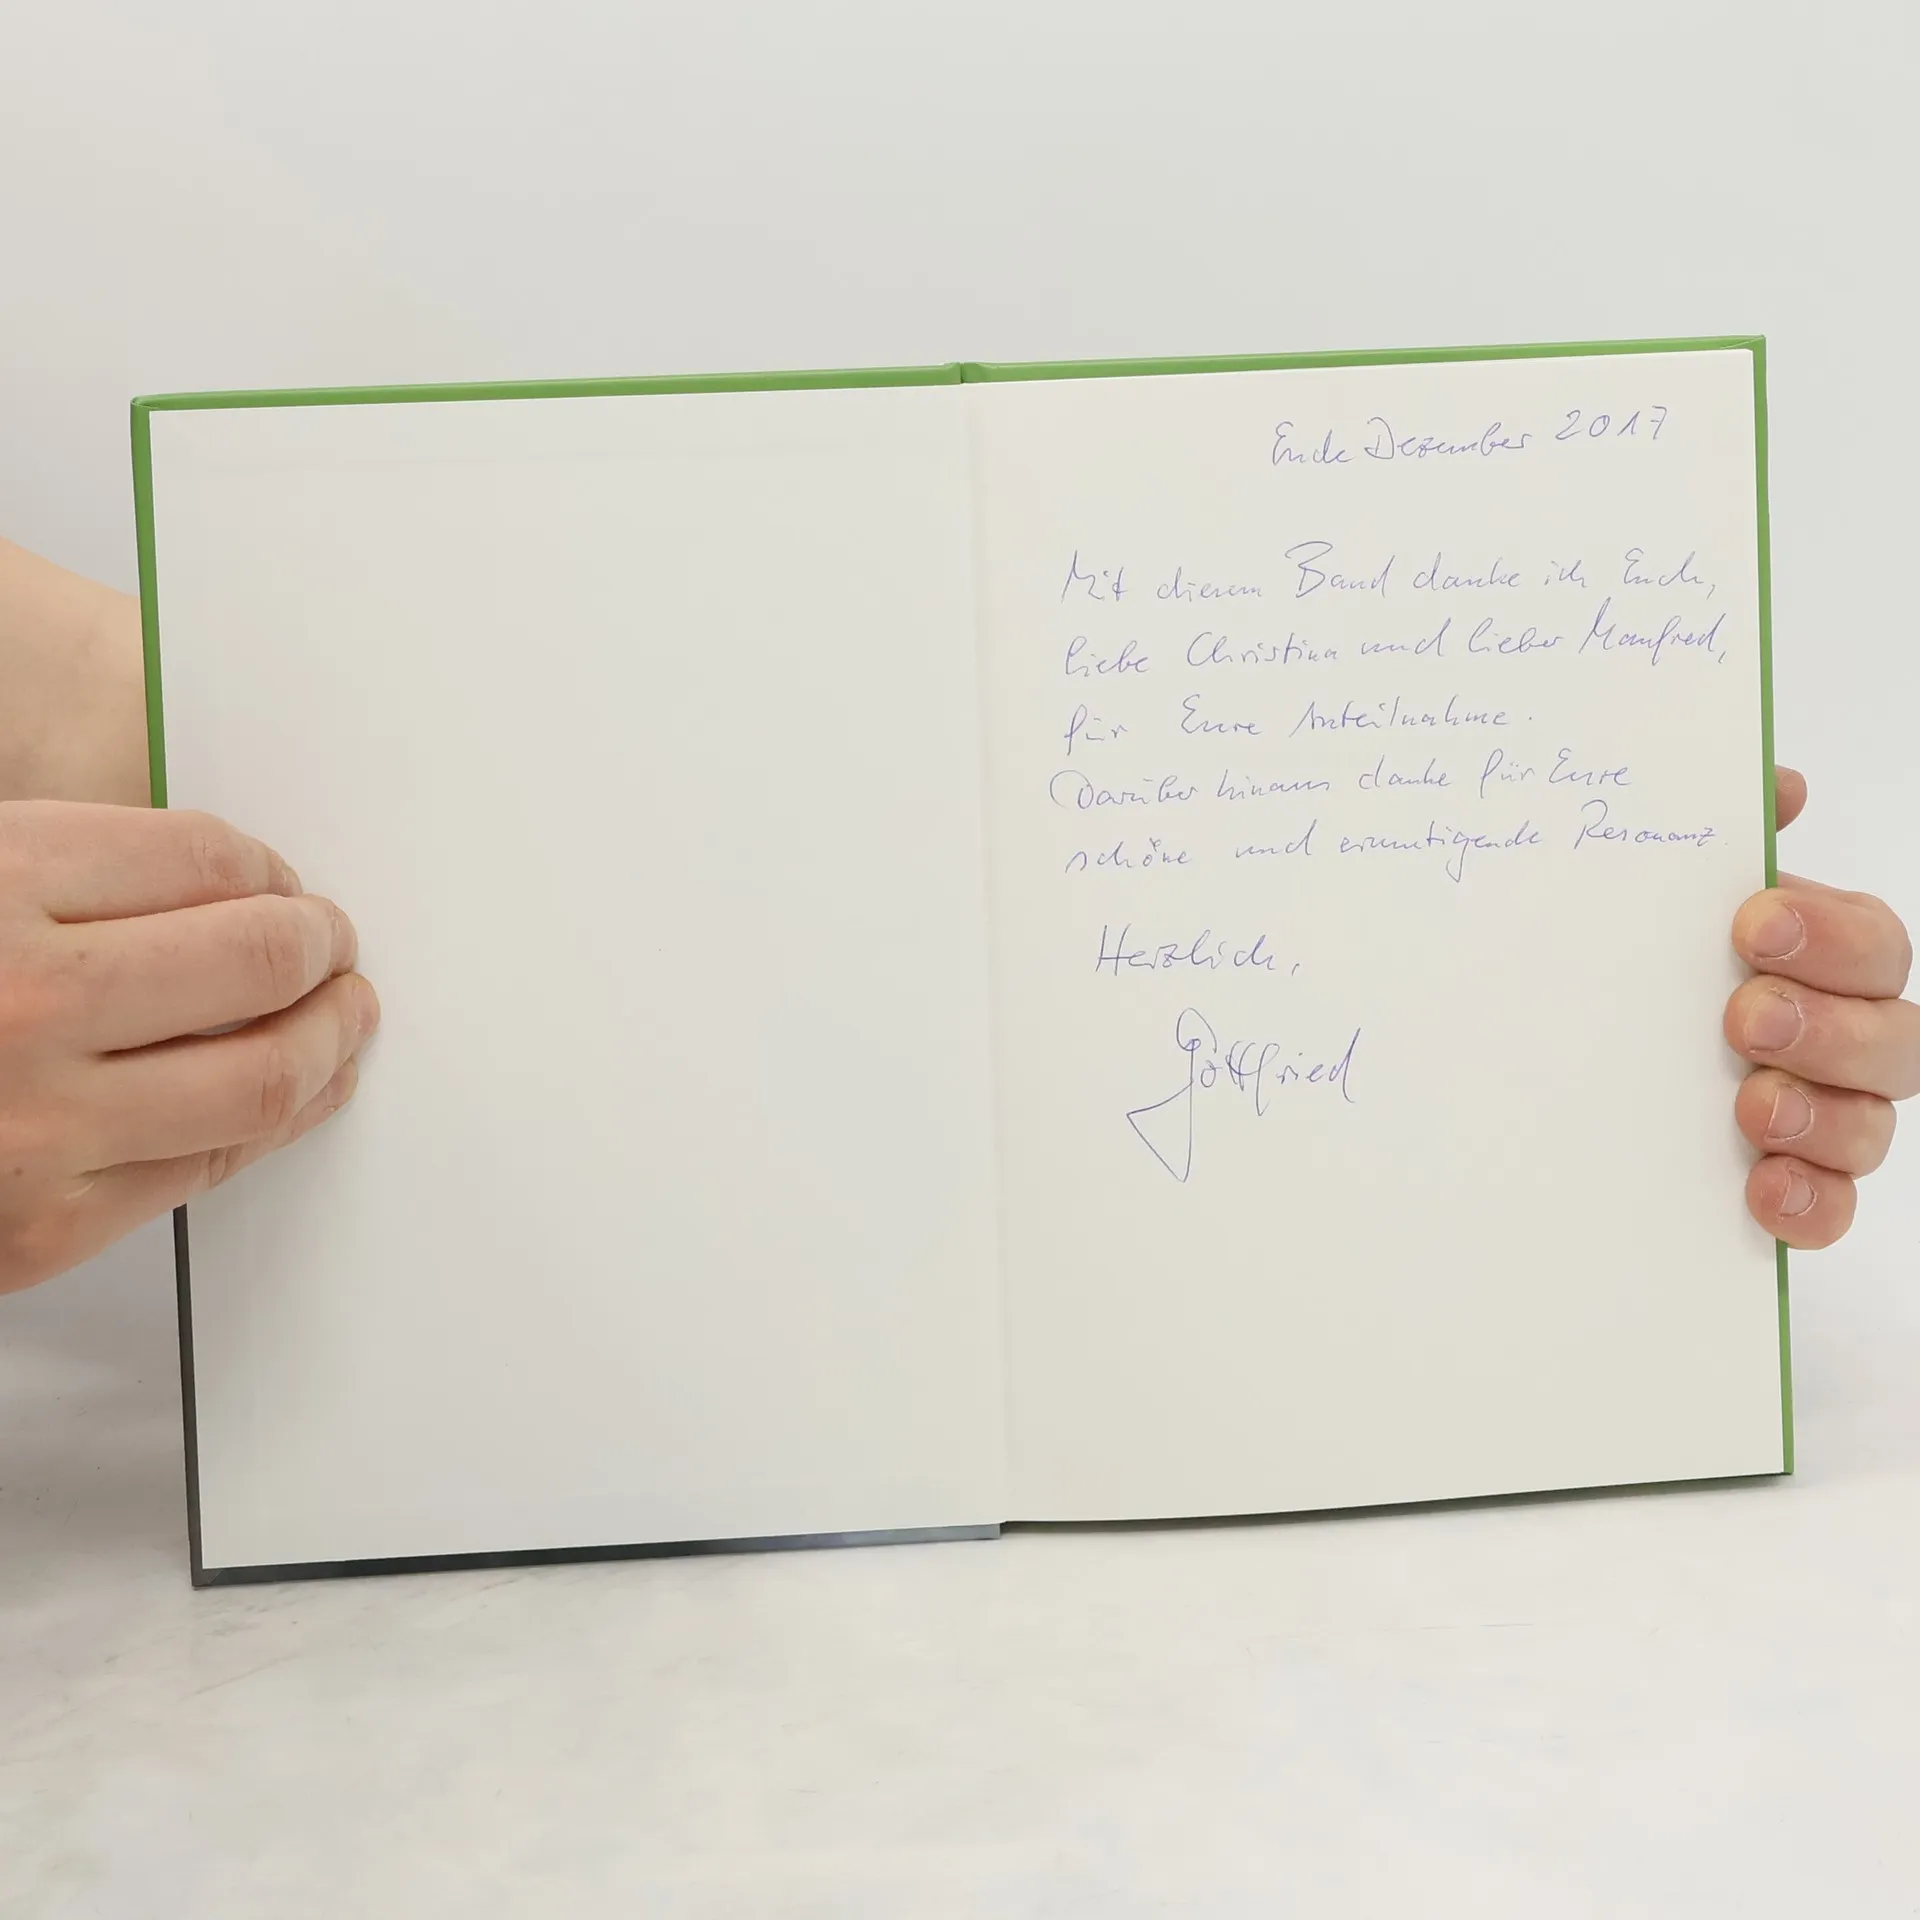 Ende Dezember 2017
Mit diesem Band danke ich Euch,
liebe Christina und lieber Manfred,
für Eure Anteilnahme.
Darüber hinaus danke für Eure
schöne und ermutigende Resonanz.
Herzlich,
Gottfried